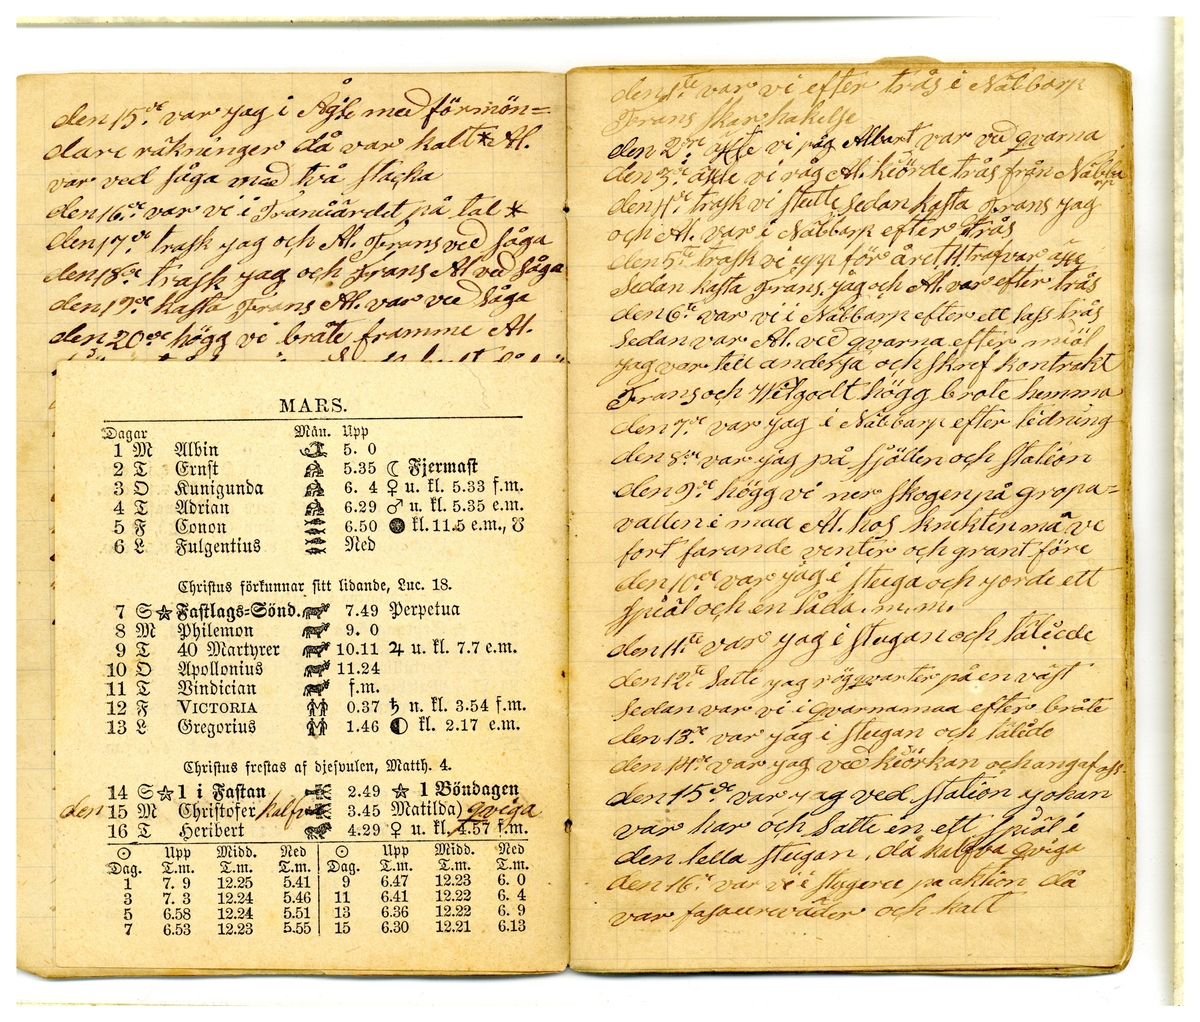 den 15de var jag i Ågse med förmön=
dare räkninger då var kalt * Al.
var ved såga med två stacka
den 16de var vi i Franuärdet på tal *
den 17de trask jag och Al. Frans ved såga
den 18de trask jag och Frans Al ved såga
den 19de kasta Frans Al. var ved såga
den 20de högg vi bråte framme Al.
MARS.
Dagar Mån. Upp
1 M Albin 5. 0
2 T Ernst 5.35 ☾ Fjermast
3 O Kunigunda 6. 4 ♀ u. kl. 5.33 f.m.
4 T Adrian 6.29 ♂ n. kl. 5.35 e.m.
5 F Conon 6.50 ● kl. 11.5 e.m., ☋
6 L Fulgentius Ned
Christus förkunnar sitt lidande, Luc. 18.
7 S ☆ Fastlags=Sönd. 7.49 Perpetua
8 M Philemon 9. 0
9 T 40 Martyrer 10.11 ♃ u. kl. 7.7 e.m.
10 O Apollonius 11.24
11 T Vindician f.m.
12 F VICTORIA 0.37 ♄ n. kl. 3.54 f.m.
13 L Gregorius 1.46 ◐ kl. 2.17 e.m.
Christus frestas af djefvulen, Matth. 4.
14 S ☆ 1 i Fastan 2.49 ☆ 1 Böndagen
den 15 M Christofer kalfv 3.45 Matilda) qviga
16 T Heribert 4.29 ♀ u. kl. 4.57 f.m.
☉ Upp Midd. Ned ☉ Upp Midd. Ned
Dag. T.m. T.m. T.m. Dag. T.m. T.m. T.m.
1 7. 9 12.25 5.41 9 6.47 12.23 6. 0
3 7. 3 12.24 5.46 11 6.41 12.22 6. 4
5 6.58 12.24 5.51 13 6.36 12.22 6. 9
7 6.53 12.23 5.55 15 6.30 12.21 6.13
den 1ste var vi efter trås i Näbbarp
Frans skar hakelse
den 2dre åkte vi råg Albart var ved qvarna
den 3de åkte vi råg Al. kiörde trås från Näbba
rp
den 4de trask vi slutte sedan kasta Frans jag
och Al. var i Näbbarp efter trås
den 5te trask vi upp för året 4 traf var åsse
sedan kasta Frans jag och Al. var efter trås
den 6te var vi i Näbbarp efter ett lass trås
sedan var Al. ved qvarna efter miöl
jag var till andersa och skref kontrakt
Frans och Hilgodt högg brote hemma
den 7de var jag i Näbbarp efter ledning
den 8de var jag på sjötten och station
den 9de högg vi ner skogen på gropa=
vallen i maa Al. hos knekten må ve
fort farande venter och grant före
den 10de var jag i stuga och jorde ett
spiäl och en låda m. m.
den 11te var jag i stugan och täliede
den 12te Satte jag rög qvarter på en väst
sedan var vi i Qvarnamaa efter bråte
den 13de var jag i stugan och täliede
den 14de var jag ved kiörkan och
den 15de var jag ved station johan
var har och Satte en ett spiäl i
den lella stugan, då kalfva qviga
den 16de var vi i stugeree pa aktion då
var väder och kalt